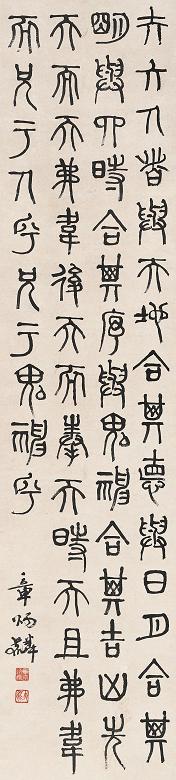 夫大人者與天地合其悳與日月合其
明與四時合其序與鬼神合其吉凶先
天而天弗韋後天而奉天時天且弗韋
而兄于人乎兄于鬼神乎
章炳麟